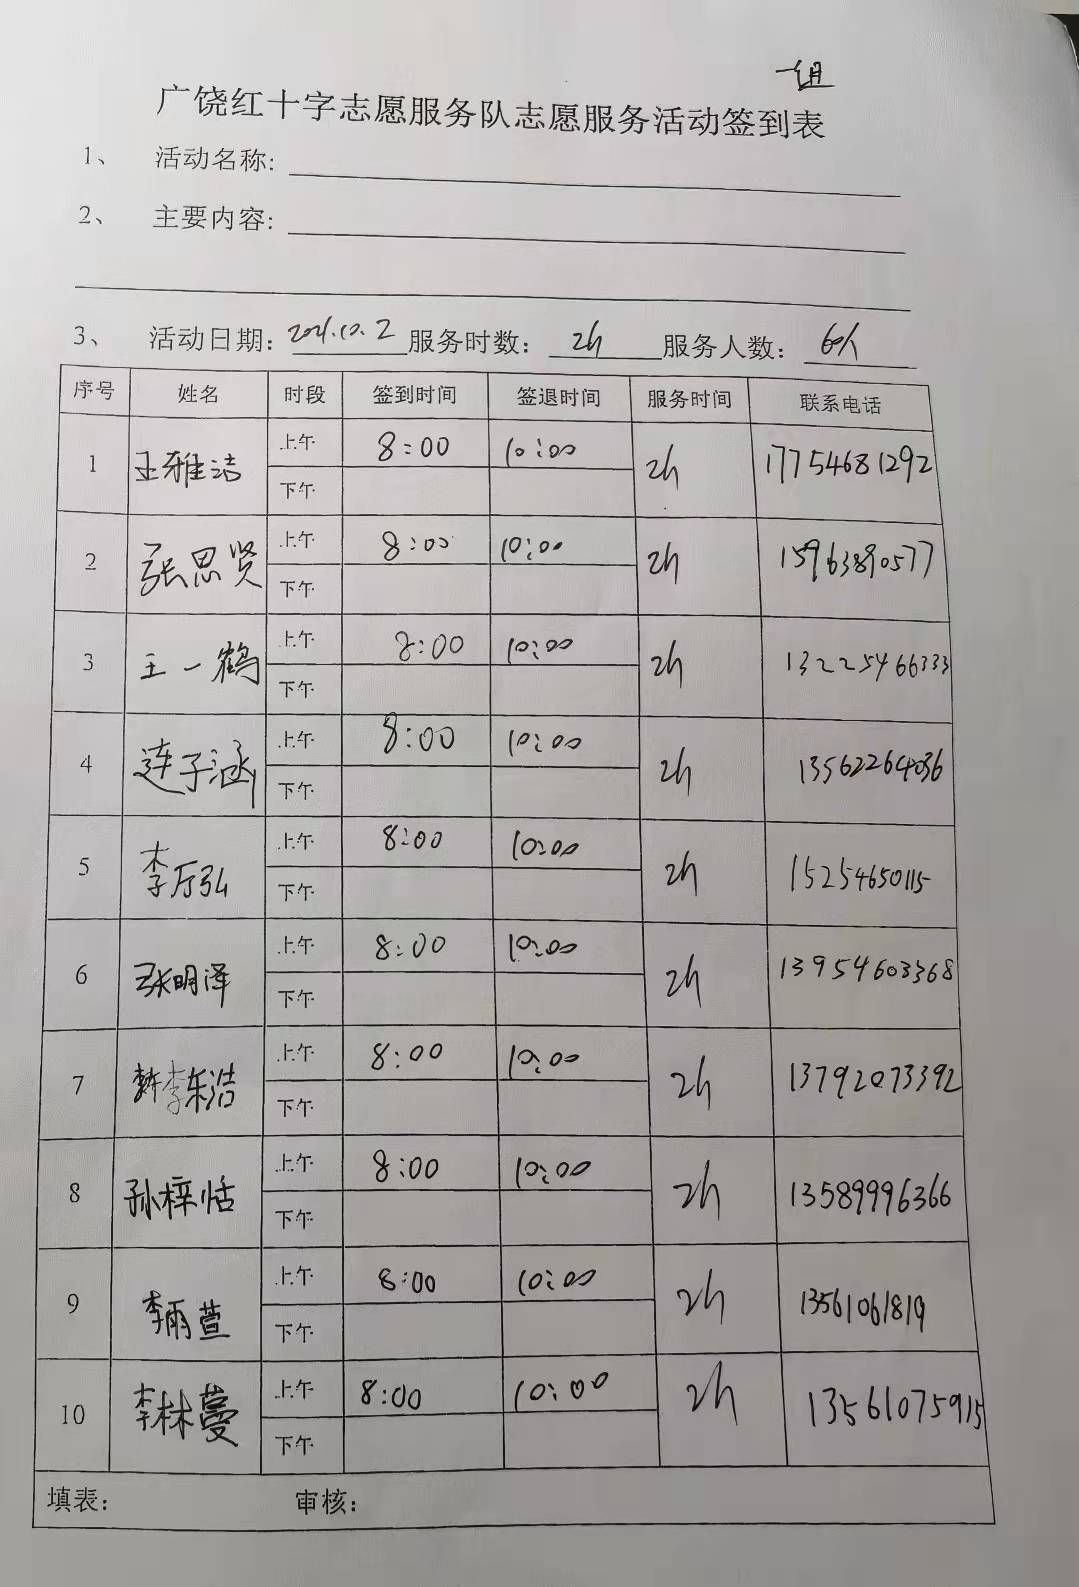 一组
广饶红十字志愿服务队志愿服务活动签到表
1、 活动名称:
2、 主要内容:
3、 活动日期: 2021.10.2 服务时数: 2h 服务人数: 60人
序号 姓名 时段 签到时间 签退时间 服务时间 联系电话
1 王雅洁 上午 8:00 10:00 2h 17754681292
下午
2 张思贤 上午 8:00 10:00 2h 15963890577
下午
3 王一鹤 上午 8:00 10:00 2h 13225466333
下午
4 连子涵 上午 8:00 10:00 2h 13562264036
下午
5 李厅弘 上午 8:00 10:00 2h 15254650115
下午
6 张明泽 上午 8:00 10:00 2h 13954603368
下午
7 李东浩 上午 8:00 10:00 2h 13792073392
下午
8 孙梓恬 上午 8:00 10:00 2h 13589996366
下午
9 李雨萱 上午 8:00 10:00 2h 13561061819
下午
10 李林蔓 上午 8:00 10:00 2h 13561075915
下午
填表: 审核: